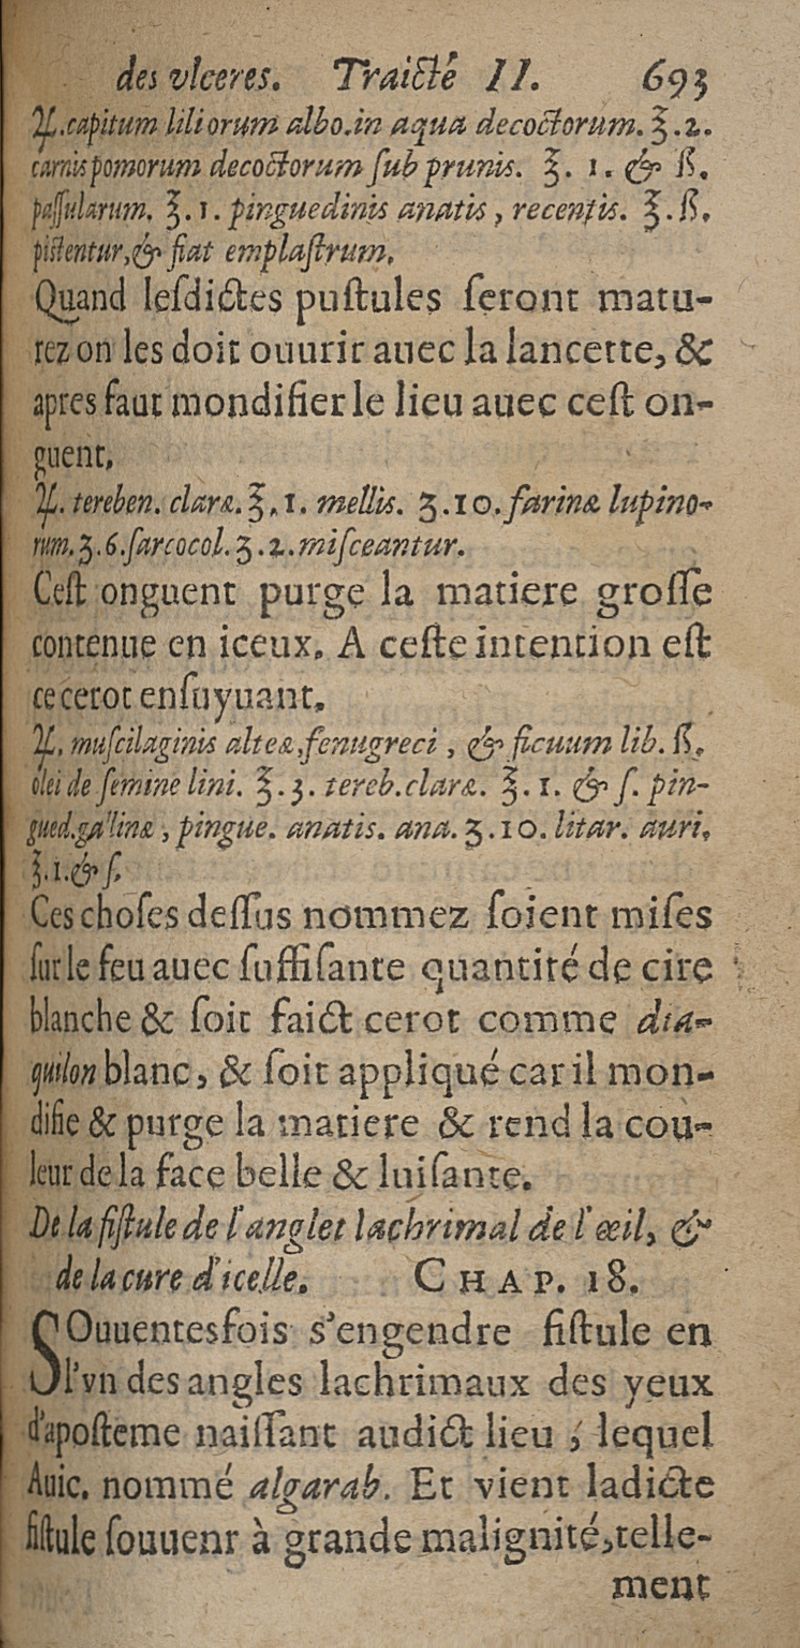 des vlceres. Traicté II. 693
♃.capitum liliorum albo.in aqua decoctorum.℥.2.
carnis pomorum decoctorum ſub prunis. ℥. 1. & ß.
paſſularum. ℥.1. pinguedinis anatis, recentis. ℥.ß.
piſtentur,& fiat emplaſtrum.
Quand leſdictes puſtules ſeront matu-
rez on les doit ouurir auec la lancette, &
apres faut mondifier le lieu auec ceſt on-
guent.
♃. tereben. claræ.℥.1. mellis. ʒ.10. farinæ lupino-
rum.ʒ.6.ſarcocol.ʒ.2.miſceantur.
Ceſt onguent purge la matiere groſſe
contenue en iceux. A ceſte intention eſt
ce cerot enſuyuant.
♃. muſcilaginis alteæ,fenugreci, & ficuum lib.ß.
olei de ſemine lini. ℥.3. tereb.claræ. ℥.1. & ſ. pin-
gued.galinæ, pingue. anatis. ana.ʒ.10. litar. auri,
℥.1.& ſ.
Ces choſes deſſus nommez ſoient miſes
ſur le feu auec ſuffiſante quantité de cire
blanche & ſoit faict cerot comme dia-
quilon blanc, & ſoit appliqué car il mon-
difie & purge la matiere & rend la cou-
leur de la face belle & luiſante.
De la fiſtule de l'anglet lachrimal de l'œil, &
de la cure d'icelle. CHAP. 18.
SOuuentesfois s'engendre fiſtule en
l'vn des angles lachrimaux des yeux
d'apoſteme naiſſant audict lieu, lequel
Auic. nommé algarab. Et vient ladicte
fiſtule ſouuent à grande malignité,telle-
ment